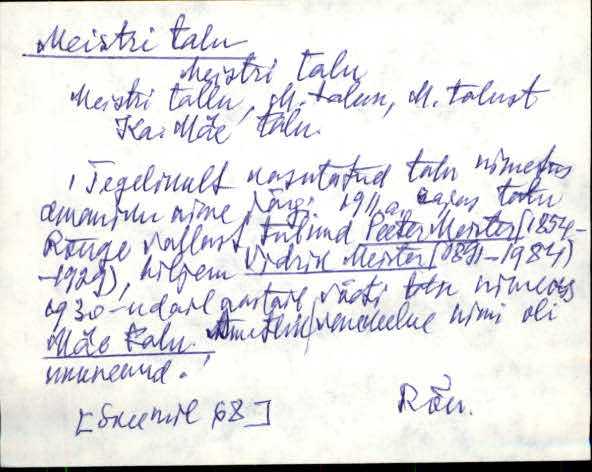 Meistri talu
Meistri talu
Meistri tallu, M. talun, M. talust
Ka: Mäe talu.
'Tegelikult kasutatud talu nimetus
omaniku nime järgi. 1911. a. talu
Rõuge vallast tulnud Peeter Meister [1854-
-1929), hiljem Vidrik Meister [1891-1984)
1930-ndail aastail võeti nimeks
Mäe talu. Ametlik venekeelne nimi oli
ununenud.'
68]
Rõu.